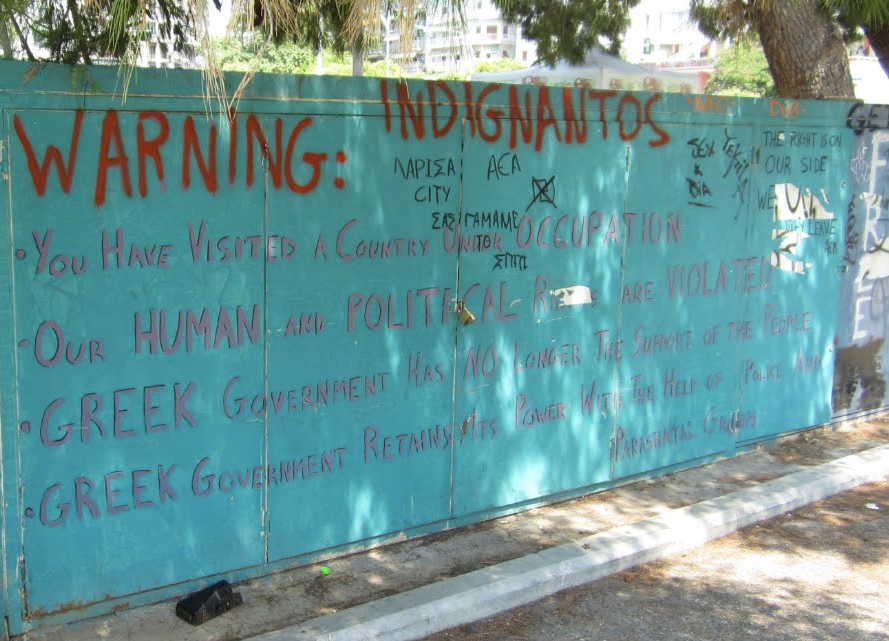 INDIGNANTOS
WARNING:
ΛΑΡΙΣΑ
CITY
ΑΕΛ
ΣΑΣ ΓΑΜΑΜΕ
ΤΟ
ΣΠΠ
ΣΕΧ
Κ
ΒΙΑ
THE RIGHT IS ON
OUR SIDE
WE
THEY LEAVE
• YOU HAVE VISITED A COUNTRY UNDER OCCUPATION
• OUR HUMAN AND POLITICAL ARE VIOLATED
• GREEK GOVERNMENT HAS NO LONGER THE SUPPORT OF THE PEOPLE
• GREEK GOVERNMENT RETAINS ITS POWER WITH THE HELP OF POLICE AND